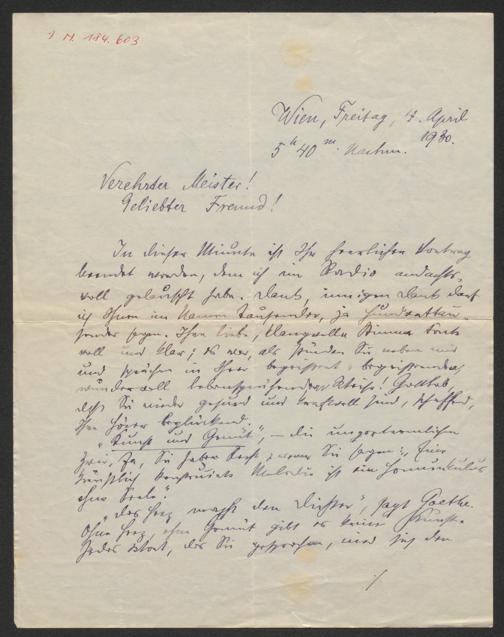 I. N. 184.603
Wien, Freitag, 4. April
1930.
5 h 40 m. Nachm.
Verehrter Meister!
Geliebter Freund!
In dieser Minute ist Ihr herrlicher Vortrag
beendet worden, dem ich am Radio andachts-
voll gelauscht habe. Dank, innigen Dank darf
ich Ihnen im Namen Tausender, ja Hunderttau-
sender sagen. Ihre liebe, klangvolle Stimme tönte
voll und klar; es war, als stünden Sie neben mir
und sprächen in Ihrer begeistert begeisternden,
wundervoll lebensprühenden Weise! Gottlob,
daß Sie wieder gesund und kraftvoll sind, schaffend,
Ihre Hörer beglückend.
"Kunst und Gemüt", – die unzertrennlichen
Zwei, Ja, Sie haben Recht, wenn Sie sagen: "Eine
künstlich konstruierte Melodie ist ein Homunkulus
ohne Seele."
"Das Herz macht den Dichter", sagt Goethe.
Ohne Herz, ohne Gemüt gibt es keine Kunst.
Jedes Wort, das Sie gesprochen, wird sich den
./.